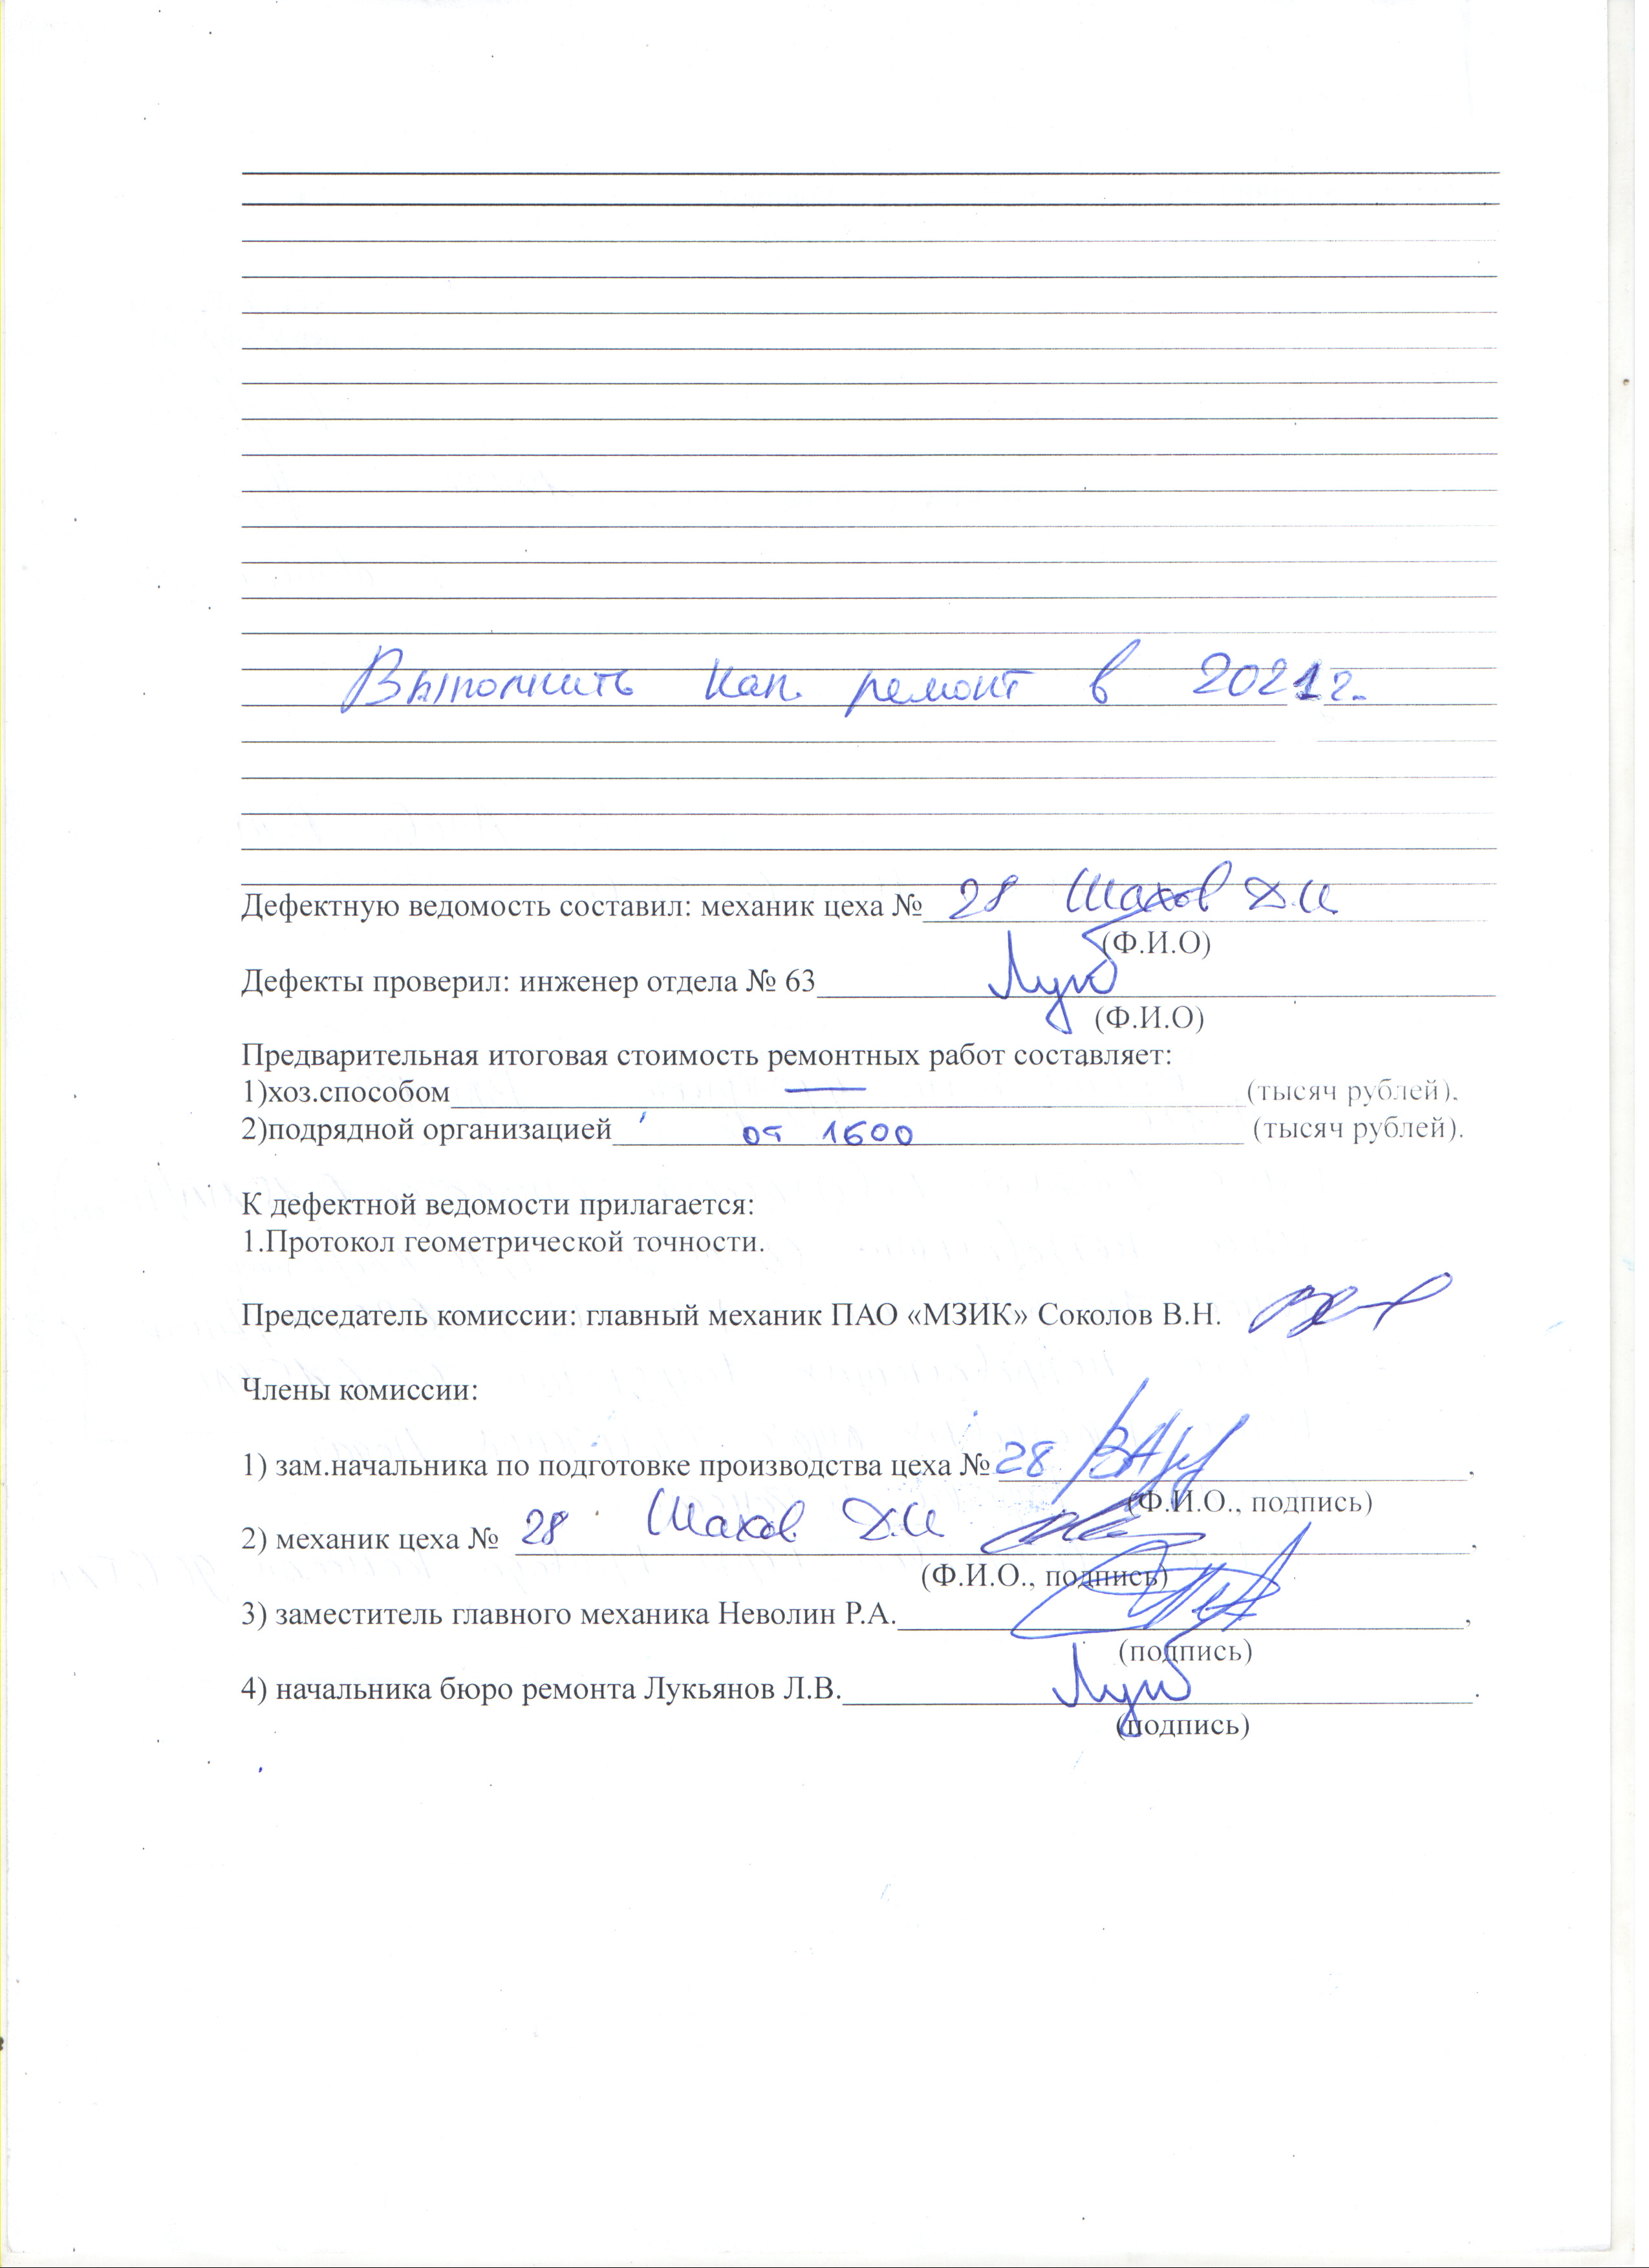 Выполнить кап. ремонт в 2021 г.
Дефектную ведомость составил: механик цеха № 28 Шахов Д.И
(Ф.И.О)
Дефекты проверил: инженер отдела № 63
(Ф.И.О)
Предварительная итоговая стоимость ремонтных работ составляет:
1)хоз.способом — (тысяч рублей).
2)подрядной организацией от 1600 (тысяч рублей).
К дефектной ведомости прилагается:
1.Протокол геометрической точности.
Председатель комиссии: главный механик ПАО «МЗИК» Соколов В.Н.
Члены комиссии:
1) зам.начальника по подготовке производства цеха № 28 ,
(Ф.И.О., подпись)
2) механик цеха № 28 Шахов Д.И ,
(Ф.И.О., подпись)
3) заместитель главного механика Неволин Р.А. ,
(подпись)
4) начальника бюро ремонта Лукьянов Л.В. .
(подпись)